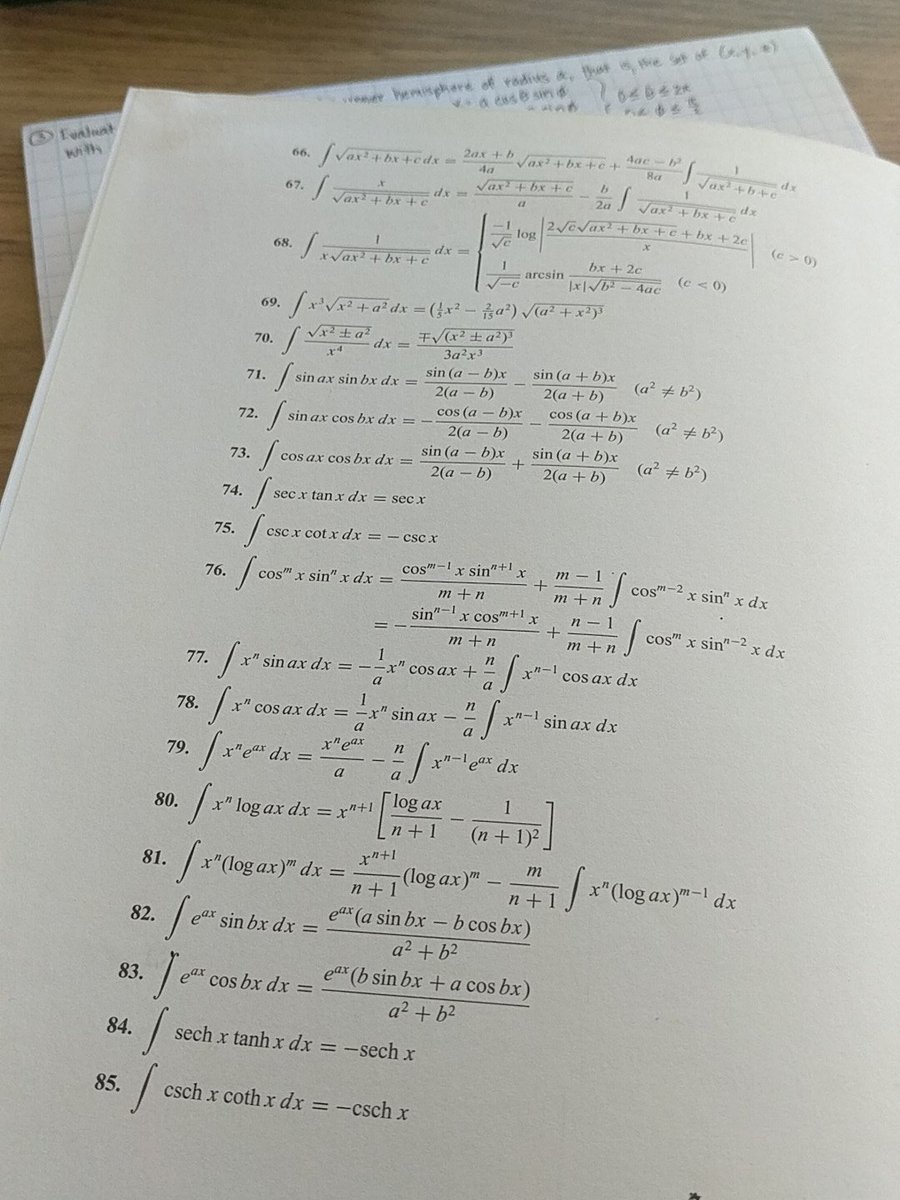 hemisphere of radius a, that is, the set of (x, y, z)
③ Evaluat
with
x = a cosθ sinφ
0 ≤ θ ≤ 2π
66. ∫ √(ax² + bx + c) dx = (2ax + b)/(4a) √(ax² + bx + c) + (4ac − b²)/(8a) ∫ 1/√(ax² + b + c) dx
67. ∫ x/√(ax² + bx + c) dx = √(ax² + bx + c)/a − b/(2a) ∫ 1/√(ax² + bx + c) dx
68. ∫ 1/(x√(ax² + bx + c)) dx = { −1/√c log |(2√c√(ax² + bx + c) + bx + 2c)/x| (c > 0)
1/√(−c) arcsin (bx + 2c)/(|x|√(b² − 4ac)) (c < 0)
69. ∫ x³√(x² + a²) dx = (1/5 x² − 2/15 a²) √((a² + x²)³)
70. ∫ √(x² ± a²)/x⁴ dx = ∓√((x² ± a²)³)/(3a²x³)
71. ∫ sin ax sin bx dx = sin (a − b)x/(2(a − b)) − sin (a + b)x/(2(a + b)) (a² ≠ b²)
72. ∫ sin ax cos bx dx = −cos (a − b)x/(2(a − b)) − cos (a + b)x/(2(a + b)) (a² ≠ b²)
73. ∫ cos ax cos bx dx = sin (a − b)x/(2(a − b)) + sin (a + b)x/(2(a + b)) (a² ≠ b²)
74. ∫ sec x tan x dx = sec x
75. ∫ csc x cot x dx = − csc x
76. ∫ cosᵐ x sinⁿ x dx = (cosᵐ⁻¹ x sinⁿ⁺¹ x)/(m + n) + (m − 1)/(m + n) ∫ cosᵐ⁻² x sinⁿ x dx
= −(sinⁿ⁻¹ x cosᵐ⁺¹ x)/(m + n) + (n − 1)/(m + n) ∫ cosᵐ x sinⁿ⁻² x dx
77. ∫ xⁿ sin ax dx = −1/a xⁿ cos ax + n/a ∫ xⁿ⁻¹ cos ax dx
78. ∫ xⁿ cos ax dx = 1/a xⁿ sin ax − n/a ∫ xⁿ⁻¹ sin ax dx
79. ∫ xⁿeᵃˣ dx = xⁿeᵃˣ/a − n/a ∫ xⁿ⁻¹eᵃˣ dx
80. ∫ xⁿ log ax dx = xⁿ⁺¹ [log ax/(n + 1) − 1/(n + 1)²]
81. ∫ xⁿ(log ax)ᵐ dx = xⁿ⁺¹/(n + 1) (log ax)ᵐ − m/(n + 1) ∫ xⁿ(log ax)ᵐ⁻¹ dx
82. ∫ eᵃˣ sin bx dx = eᵃˣ(a sin bx − b cos bx)/(a² + b²)
83. ∫ eᵃˣ cos bx dx = eᵃˣ(b sin bx + a cos bx)/(a² + b²)
84. ∫ sech x tanh x dx = −sech x
85. ∫ csch x coth x dx = −csch x